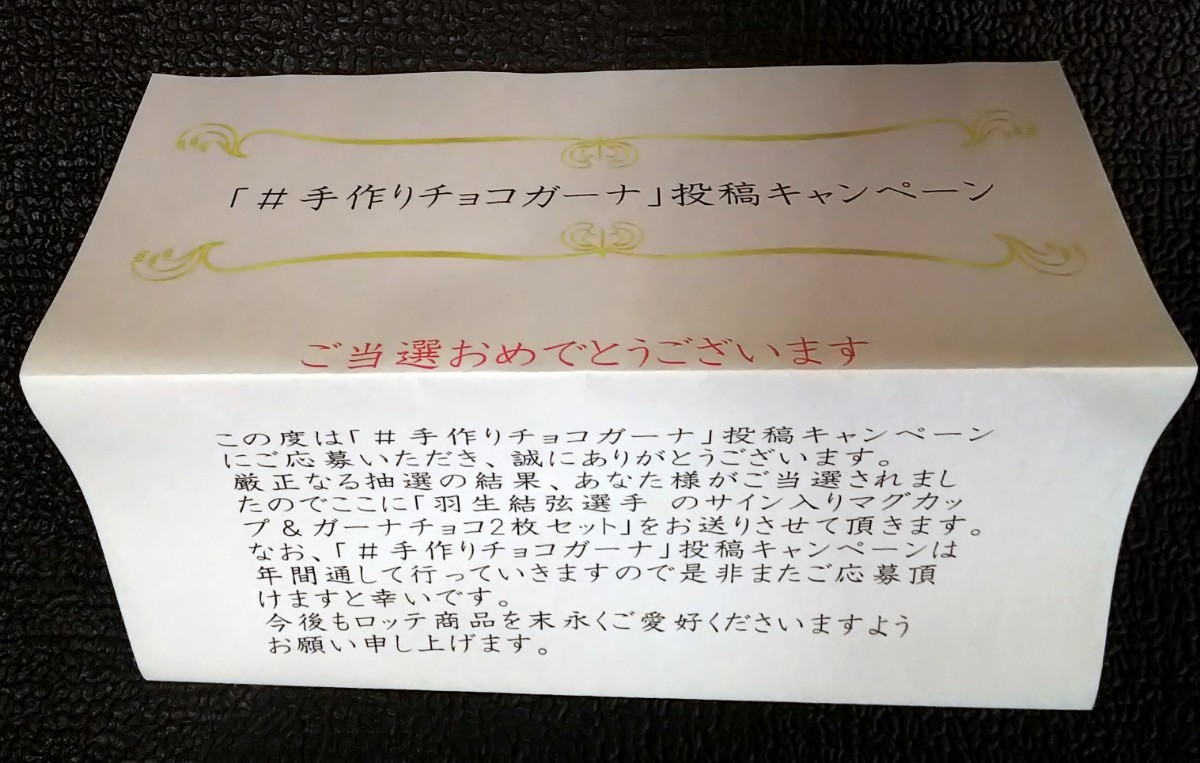 「＃手作りチョコガーナ」投稿キャンペーン
ご当選おめでとうございます
この度は「＃手作りチョコガーナ」投稿キャンペーン
にご応募いただき、誠にありがとうございます。
厳正なる抽選の結果、あなた様がご当選されまし
たのでここに「羽生結弦選手 のサイン入りマグカッ
プ＆ガーナチョコ2枚セット」をお送りさせて頂きます。
なお、「＃手作りチョコガーナ」投稿キャンペーンは
年間通して行っていきますので是非またご応募頂
けますと幸いです。
今後もロッテ商品を末永くご愛好くださいますよう
お願い申し上げます。